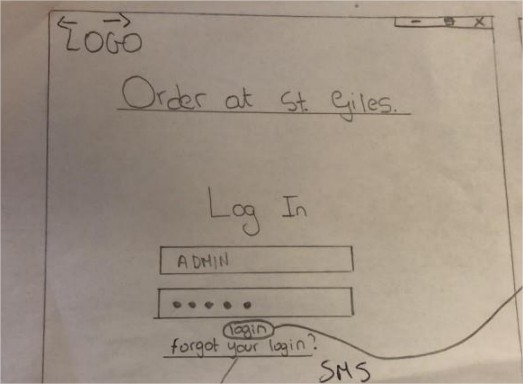 LOGO
Order at St. Giles.
Log In
ADMIN
login
forgot your login?
SMS